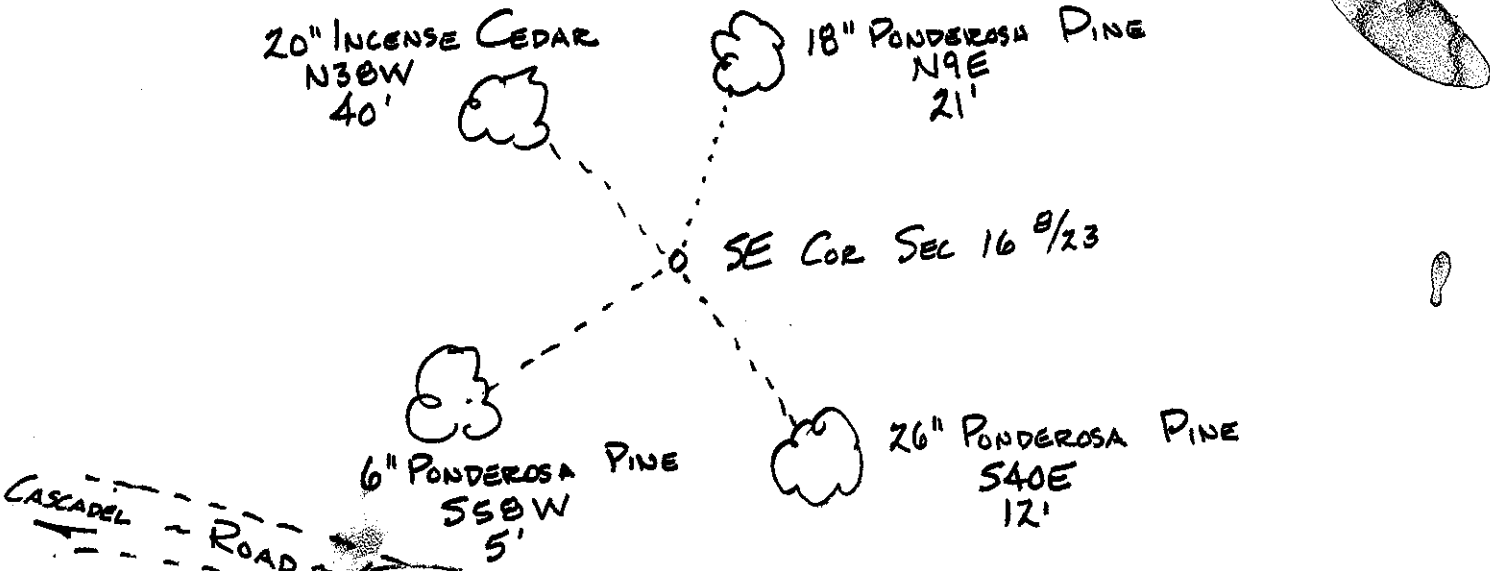 20" INCENSE CEDAR
N38W
40'
18" PONDEROSA PINE
N9E
21'
SE COR SEC 16 8/23
6" PONDEROSA PINE
S58W
5'
26" PONDEROSA PINE
S40E
12'
CASCADEL ROAD